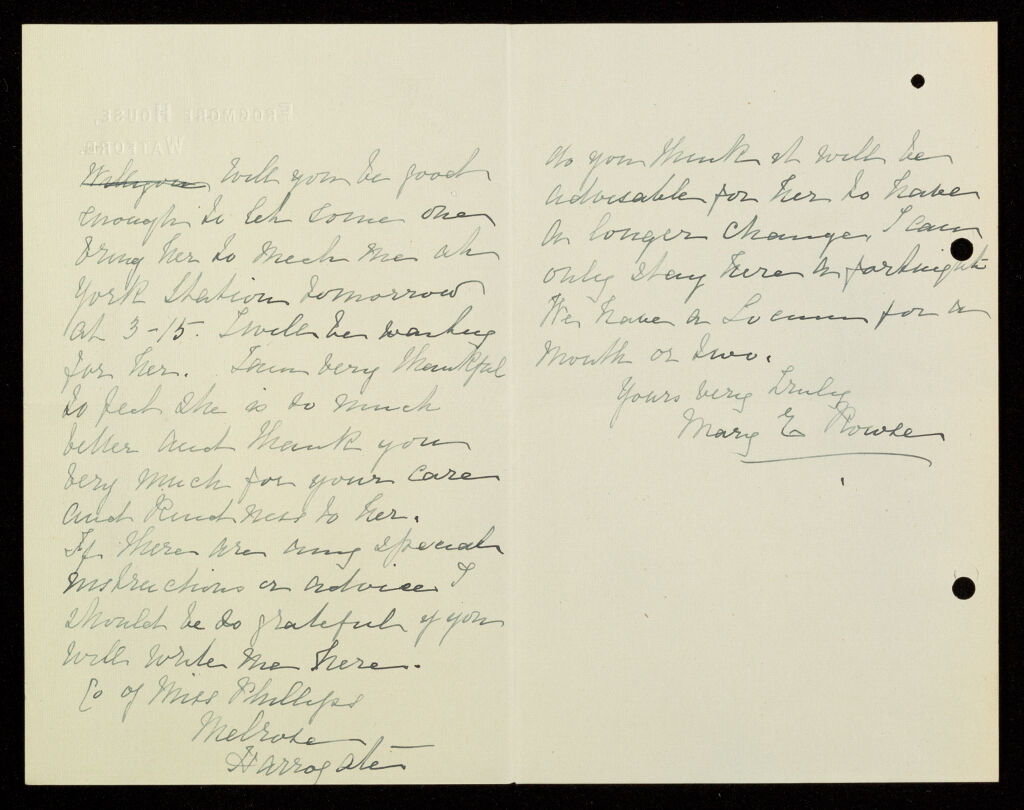 FROGMORE HOUSE,
WATFORD.
Will you Will you be good
enough to let some one
bring her to meet me at
York Station tomorrow
at 3-15. I will be waiting
for her. I am very thankful
to feel she is so much
better and thank you
very much for your care
and kindness to her.
If there are any special
instructions or advice I
should be so grateful if you
will write me here.
c/o of Miss Phillips
Melrose
Harrogate
do you think it will be
advisable for her to have
a longer change, I can
only stay here a fortnight
We have a Locum for a
month or two.
Yours very truly
Mary E Rowse